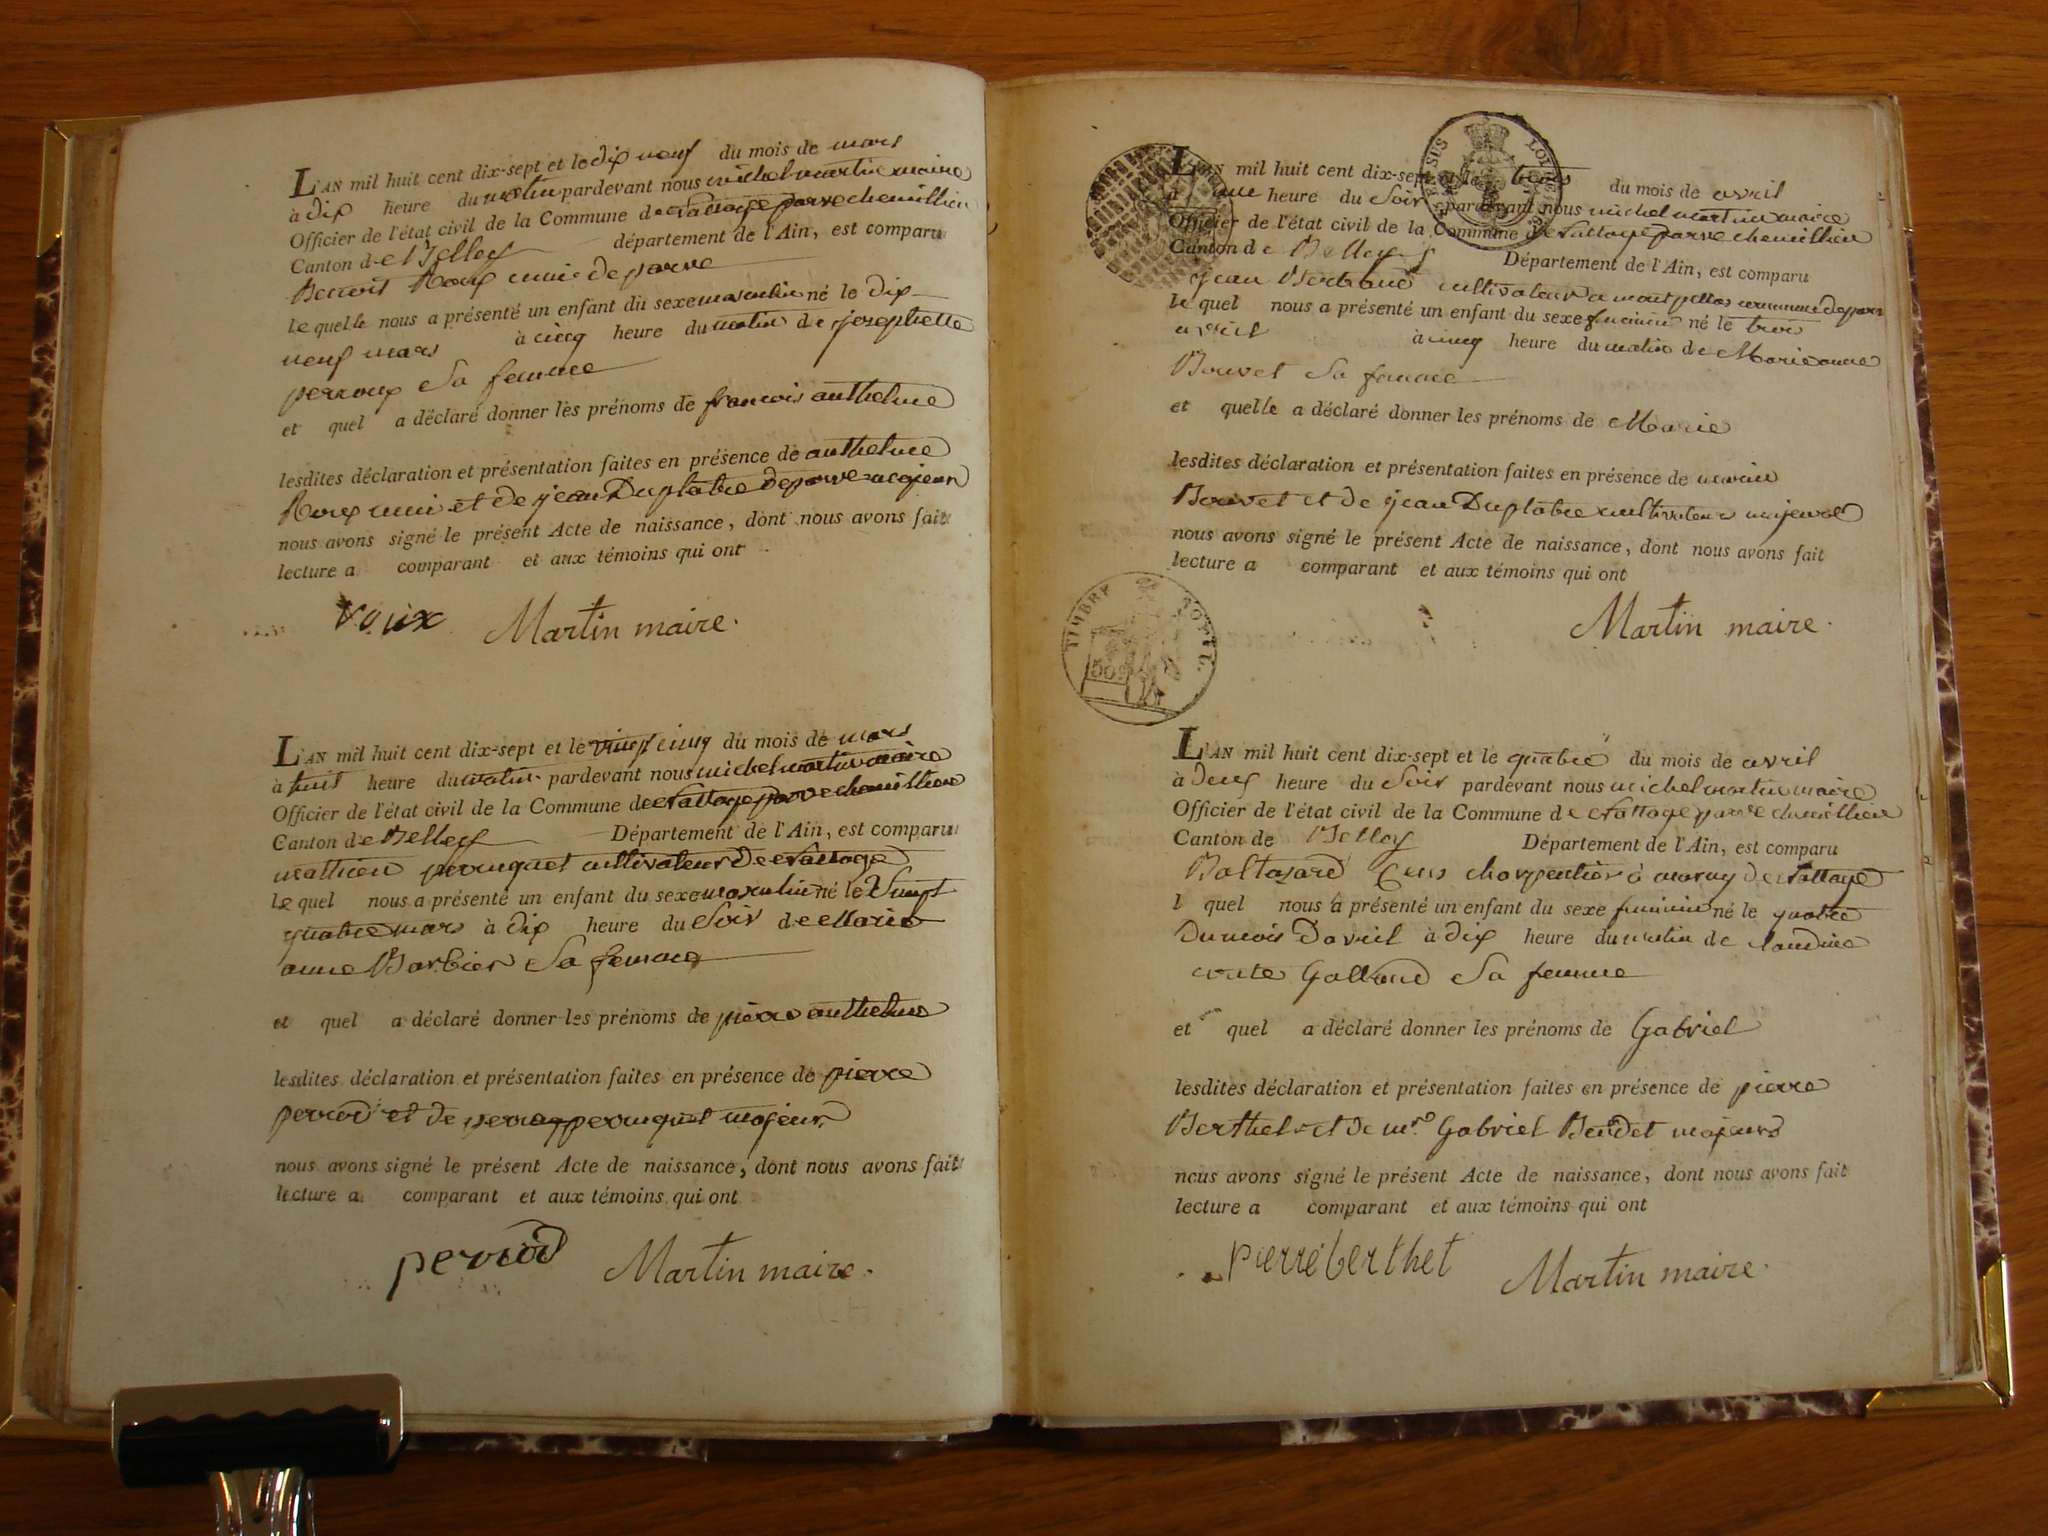 L'AN mil huit cent dix-sept et le dix neuf du mois de mars
à dix heure du matin pardevant nous michel martin maire
Officier de l'état civil de la Commune de parve chemillieu
Canton de Belley département de l'Ain, est comparu
Benoit Roux de parve
lequelle nous a présenté un enfant du sexe masculin né le dix
neuf mars à cinq heure du matin de josephette
perroux Sa femme
et quel a déclaré donner les prénoms de francois anthelme
lesdites déclaration et présentation faites en présence de anthelme
Roux et de jean Duplatre de parve majeurs
nous avons signé le présent Acte de naissance, dont nous avons fait
lecture a comparant et aux témoins qui ont
roux Martin maire.
L'AN mil huit cent dix-sept et le vingt cinq du mois de mars
à huit heure du matin pardevant nous michel martin maire
Officier de l'état civil de la Commune de parve chemillieu
Canton de Belley Département de l'Ain, est comparu
mathieu peruquet cultivateur de
lequel nous a présenté un enfant du sexe masculin né le vingt
quatre mars à dix heure du Soir de Marie
anne Barbier Sa femme
et quel a déclaré donner les prénoms de pierre anthelme
lesdites déclaration et présentation faites en présence de pierre
perrod et de peruquet majeurs
nous avons signé le présent Acte de naissance, dont nous avons fait
lecture a comparant et aux témoins qui ont
perrod Martin maire.
L'AN mil huit cent dix-sept et le trois du mois de avril
à une heure du Soir pardevant nous michel martin maire
Officier de l'état civil de la Commune de parve chemillieu
Canton de Belley Département de l'Ain, est comparu
jean Bertrand cultivateur a commune de parve
le quel nous a présenté un enfant du sexe feminin né le trois
avril à cinq heure du matin de Marie anne
Bouvet Sa femme
et quelle a déclaré donner les prénoms de Marie
lesdites déclaration et présentation faites en présence de
Bouvet et de jean Duplatre cultivateurs majeurs
nous avons signé le présent Acte de naissance, dont nous avons fait
lecture a comparant et aux témoins qui ont
TIMBRE ROYAL
50
Martin maire.
L'AN mil huit cent dix-sept et le quatre du mois de avril
à deux heure du Soir pardevant nous michel martin maire
Officier de l'état civil de la Commune de parve chemillieu
Canton de Belley Département de l'Ain, est comparu
Baltazard charpentier à
l quel nous a présenté un enfant du sexe feminin né le quatre
Dumois Davril à dix heure du matin de Claudine
Golland Sa femme
et quel a déclaré donner les prénoms de Gabriel
lesdites déclaration et présentation faites en présence de pierre
Berthet et de mr. Gabriel Bendet majeurs
nous avons signé le présent Acte de naissance, dont nous avons fait
lecture a comparant et aux témoins qui ont
pierre berthet Martin maire.